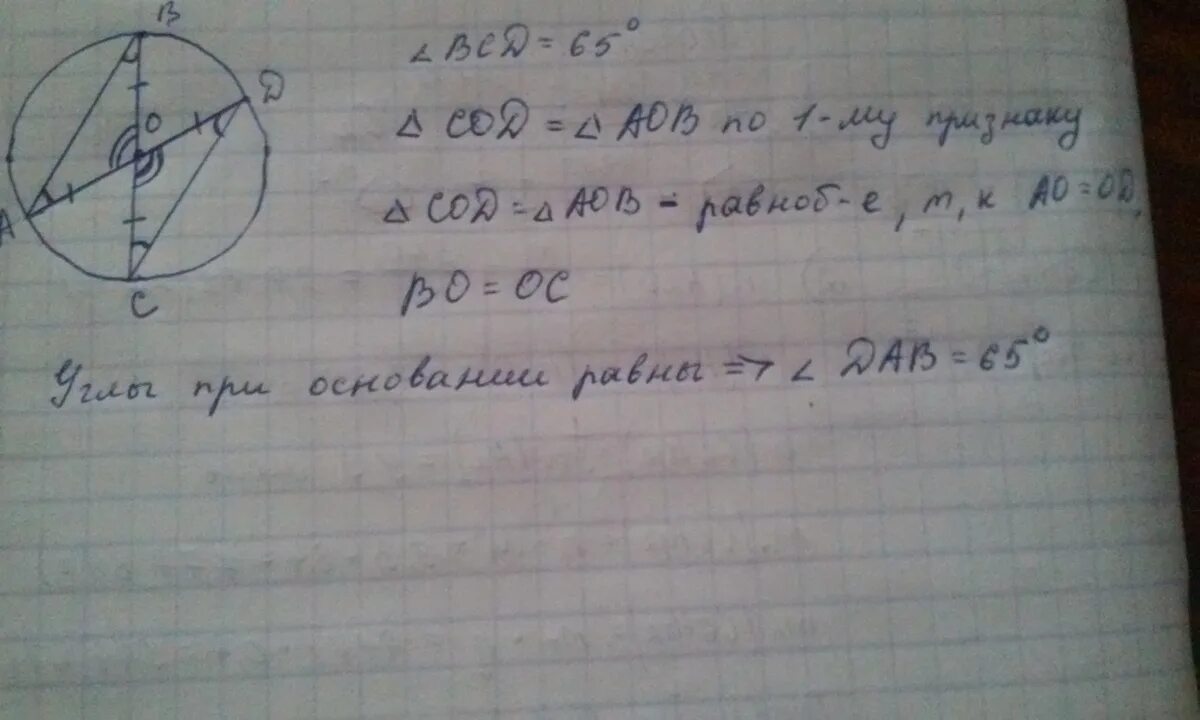 B
D
O
A
C
∠BCD = 65°
△ COD = △ AOB по 1-му признаку
△ COD = △ AOB - равноб-е, т, к AO = OD,
BO = OC
Углы при основании равны => ∠ DAB = 65°